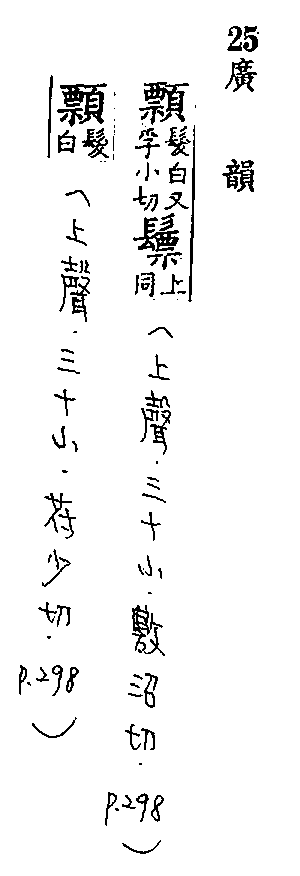 25廣韻
顠髮白又孚小切䯽上同(上聲.三十小.敷沼切.p.298)
顠髮白(上聲.三十小.苻少切.p.298)